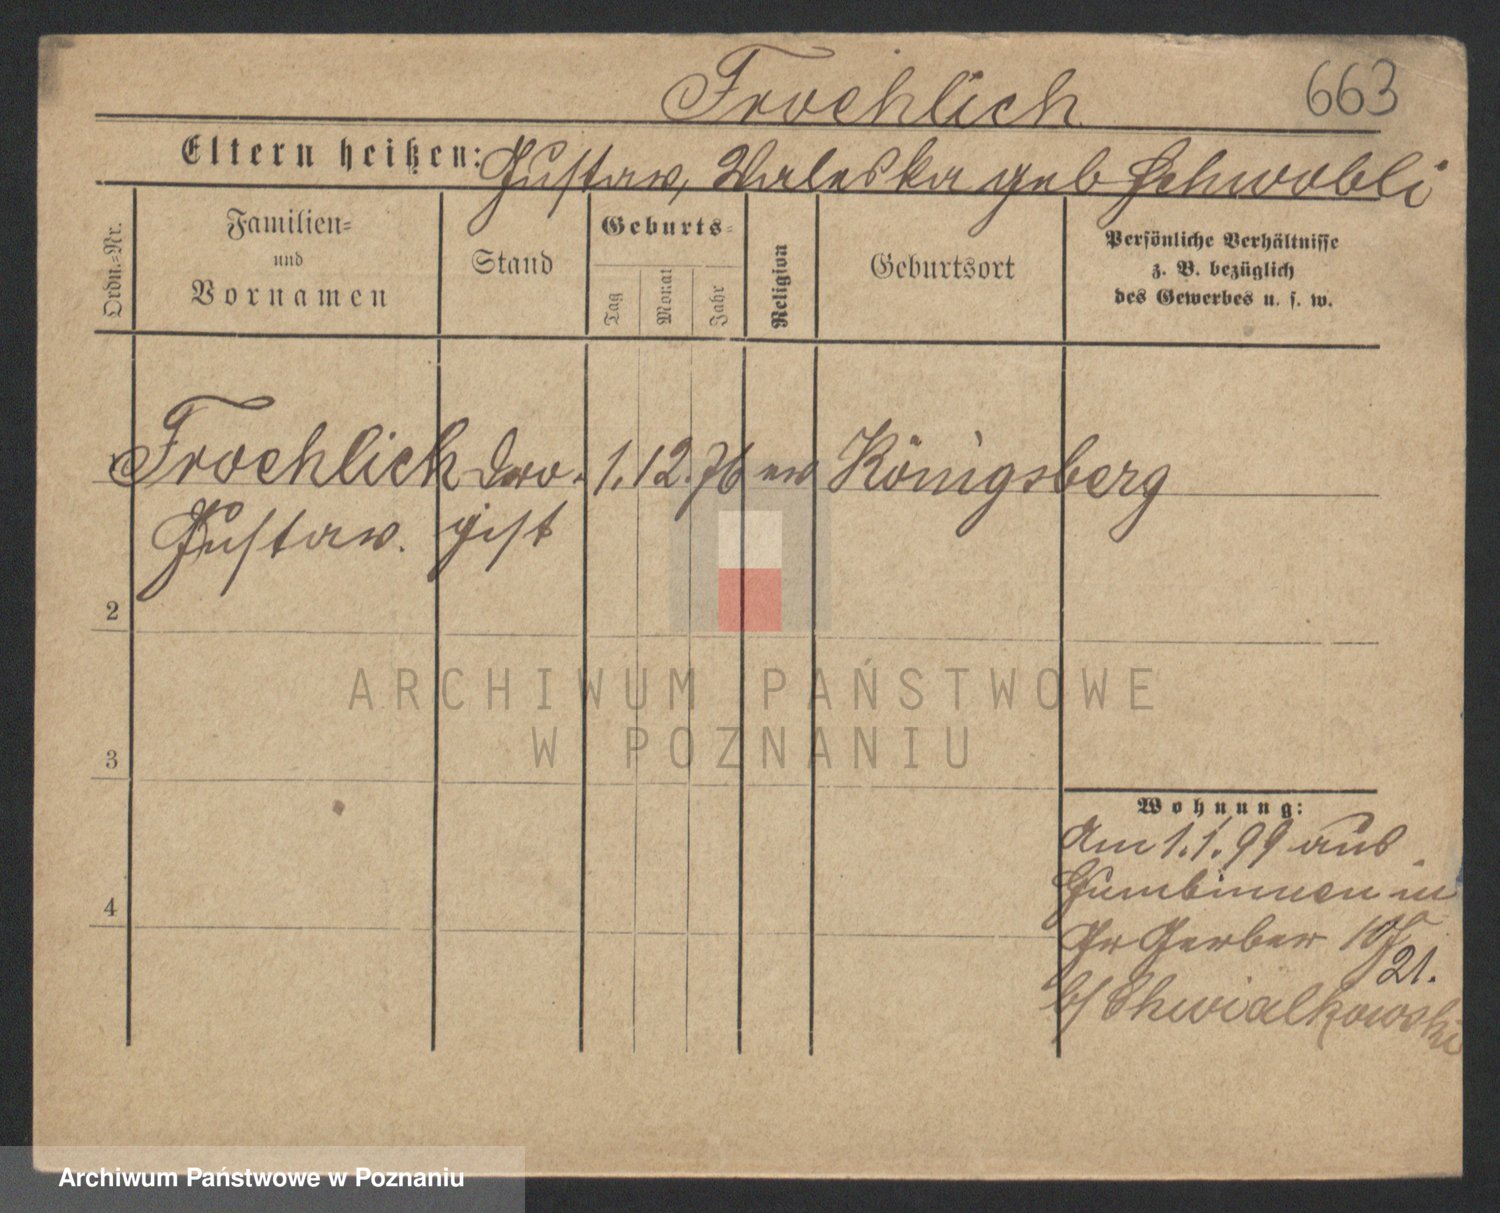 Froehlich
663
Eltern heißen: Gustav, Waleska geb Schwobli
Ordn.=Nr.
Familien=
und
Vornamen
Stand
Geburts=
Tag
Monat
Jahr
Religion
Geburtsort
Persönliche Verhältnisse
z. B. bezüglich
des Gewerbes u. s. w.
Froehlich Dro- 1. 12. 76 ev Königsberg
Gustav. gist
2
ARCHIWUM PAŃSTWOWE
W POZNANIU
3
Wohnung:
Am 1.1.99 aus
Gumbinnen in
4
Gr Gerber
21.
b/ Chwialkowski
Archiwum Państwowe w Poznaniu